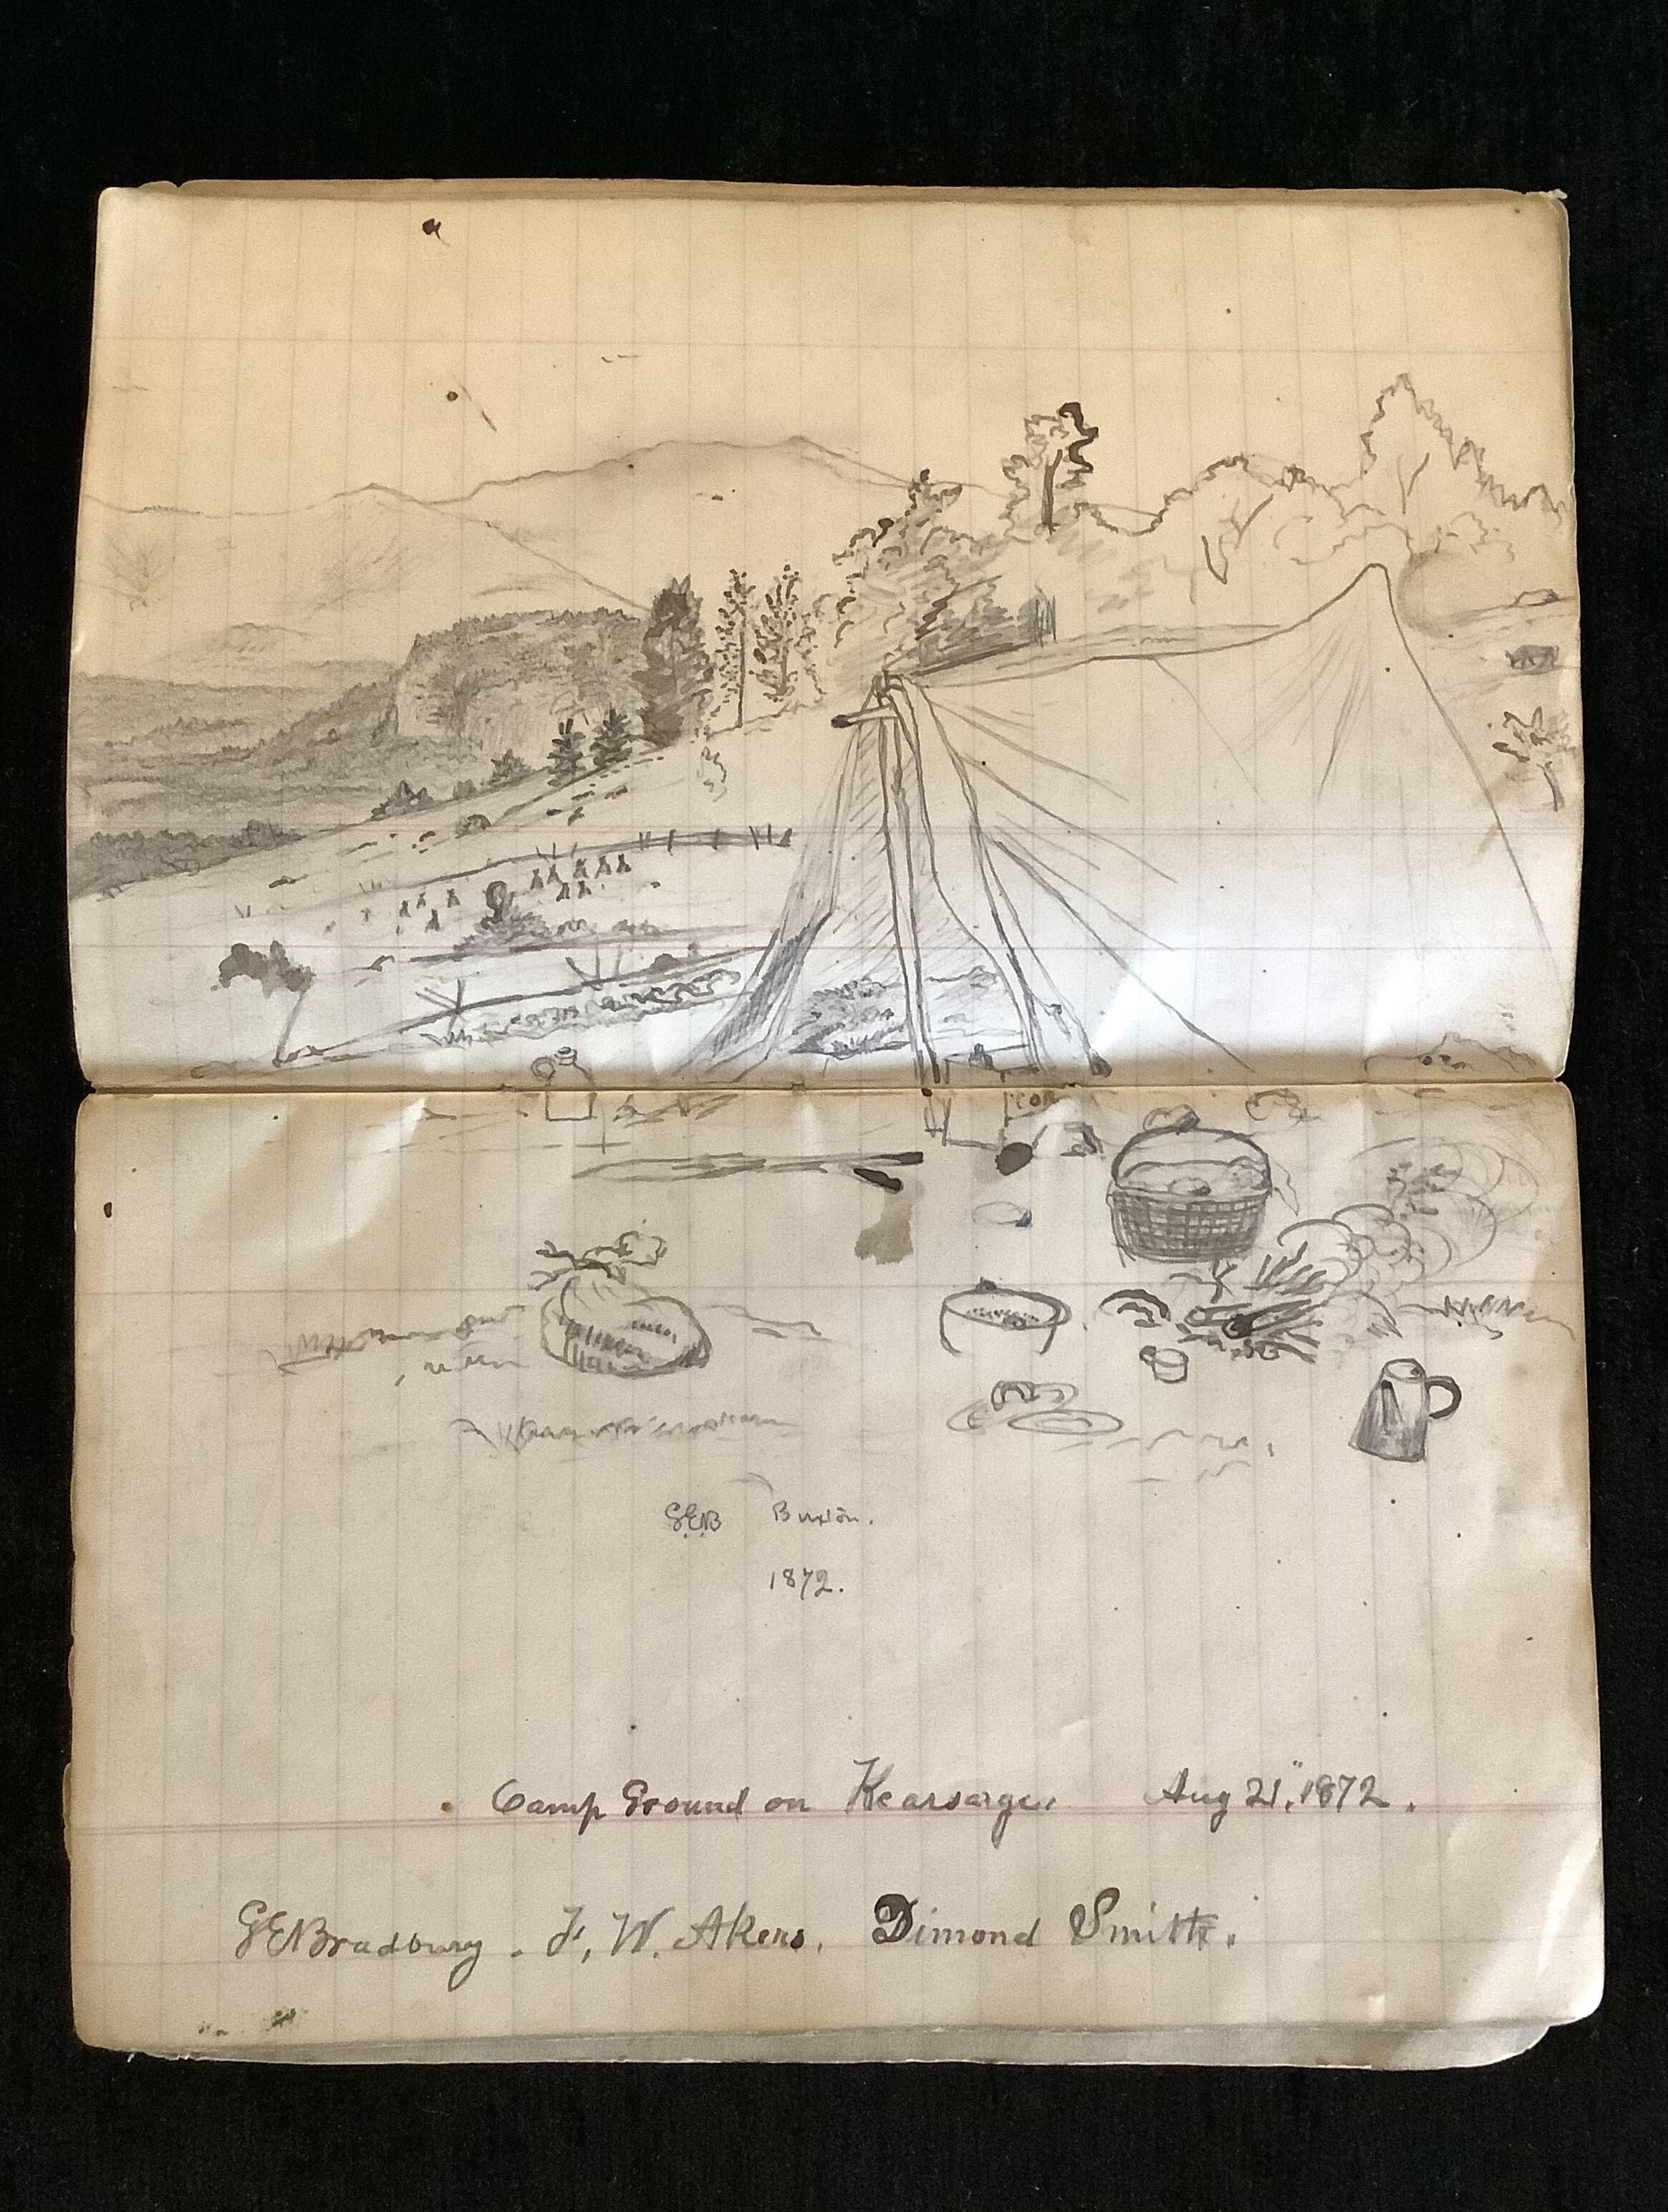 GEB Buxton.
1872.
Camp Ground on Kearsarge. Aug 21, 1872.
GEBradbury. F, W. Akers. Dimond Smith.